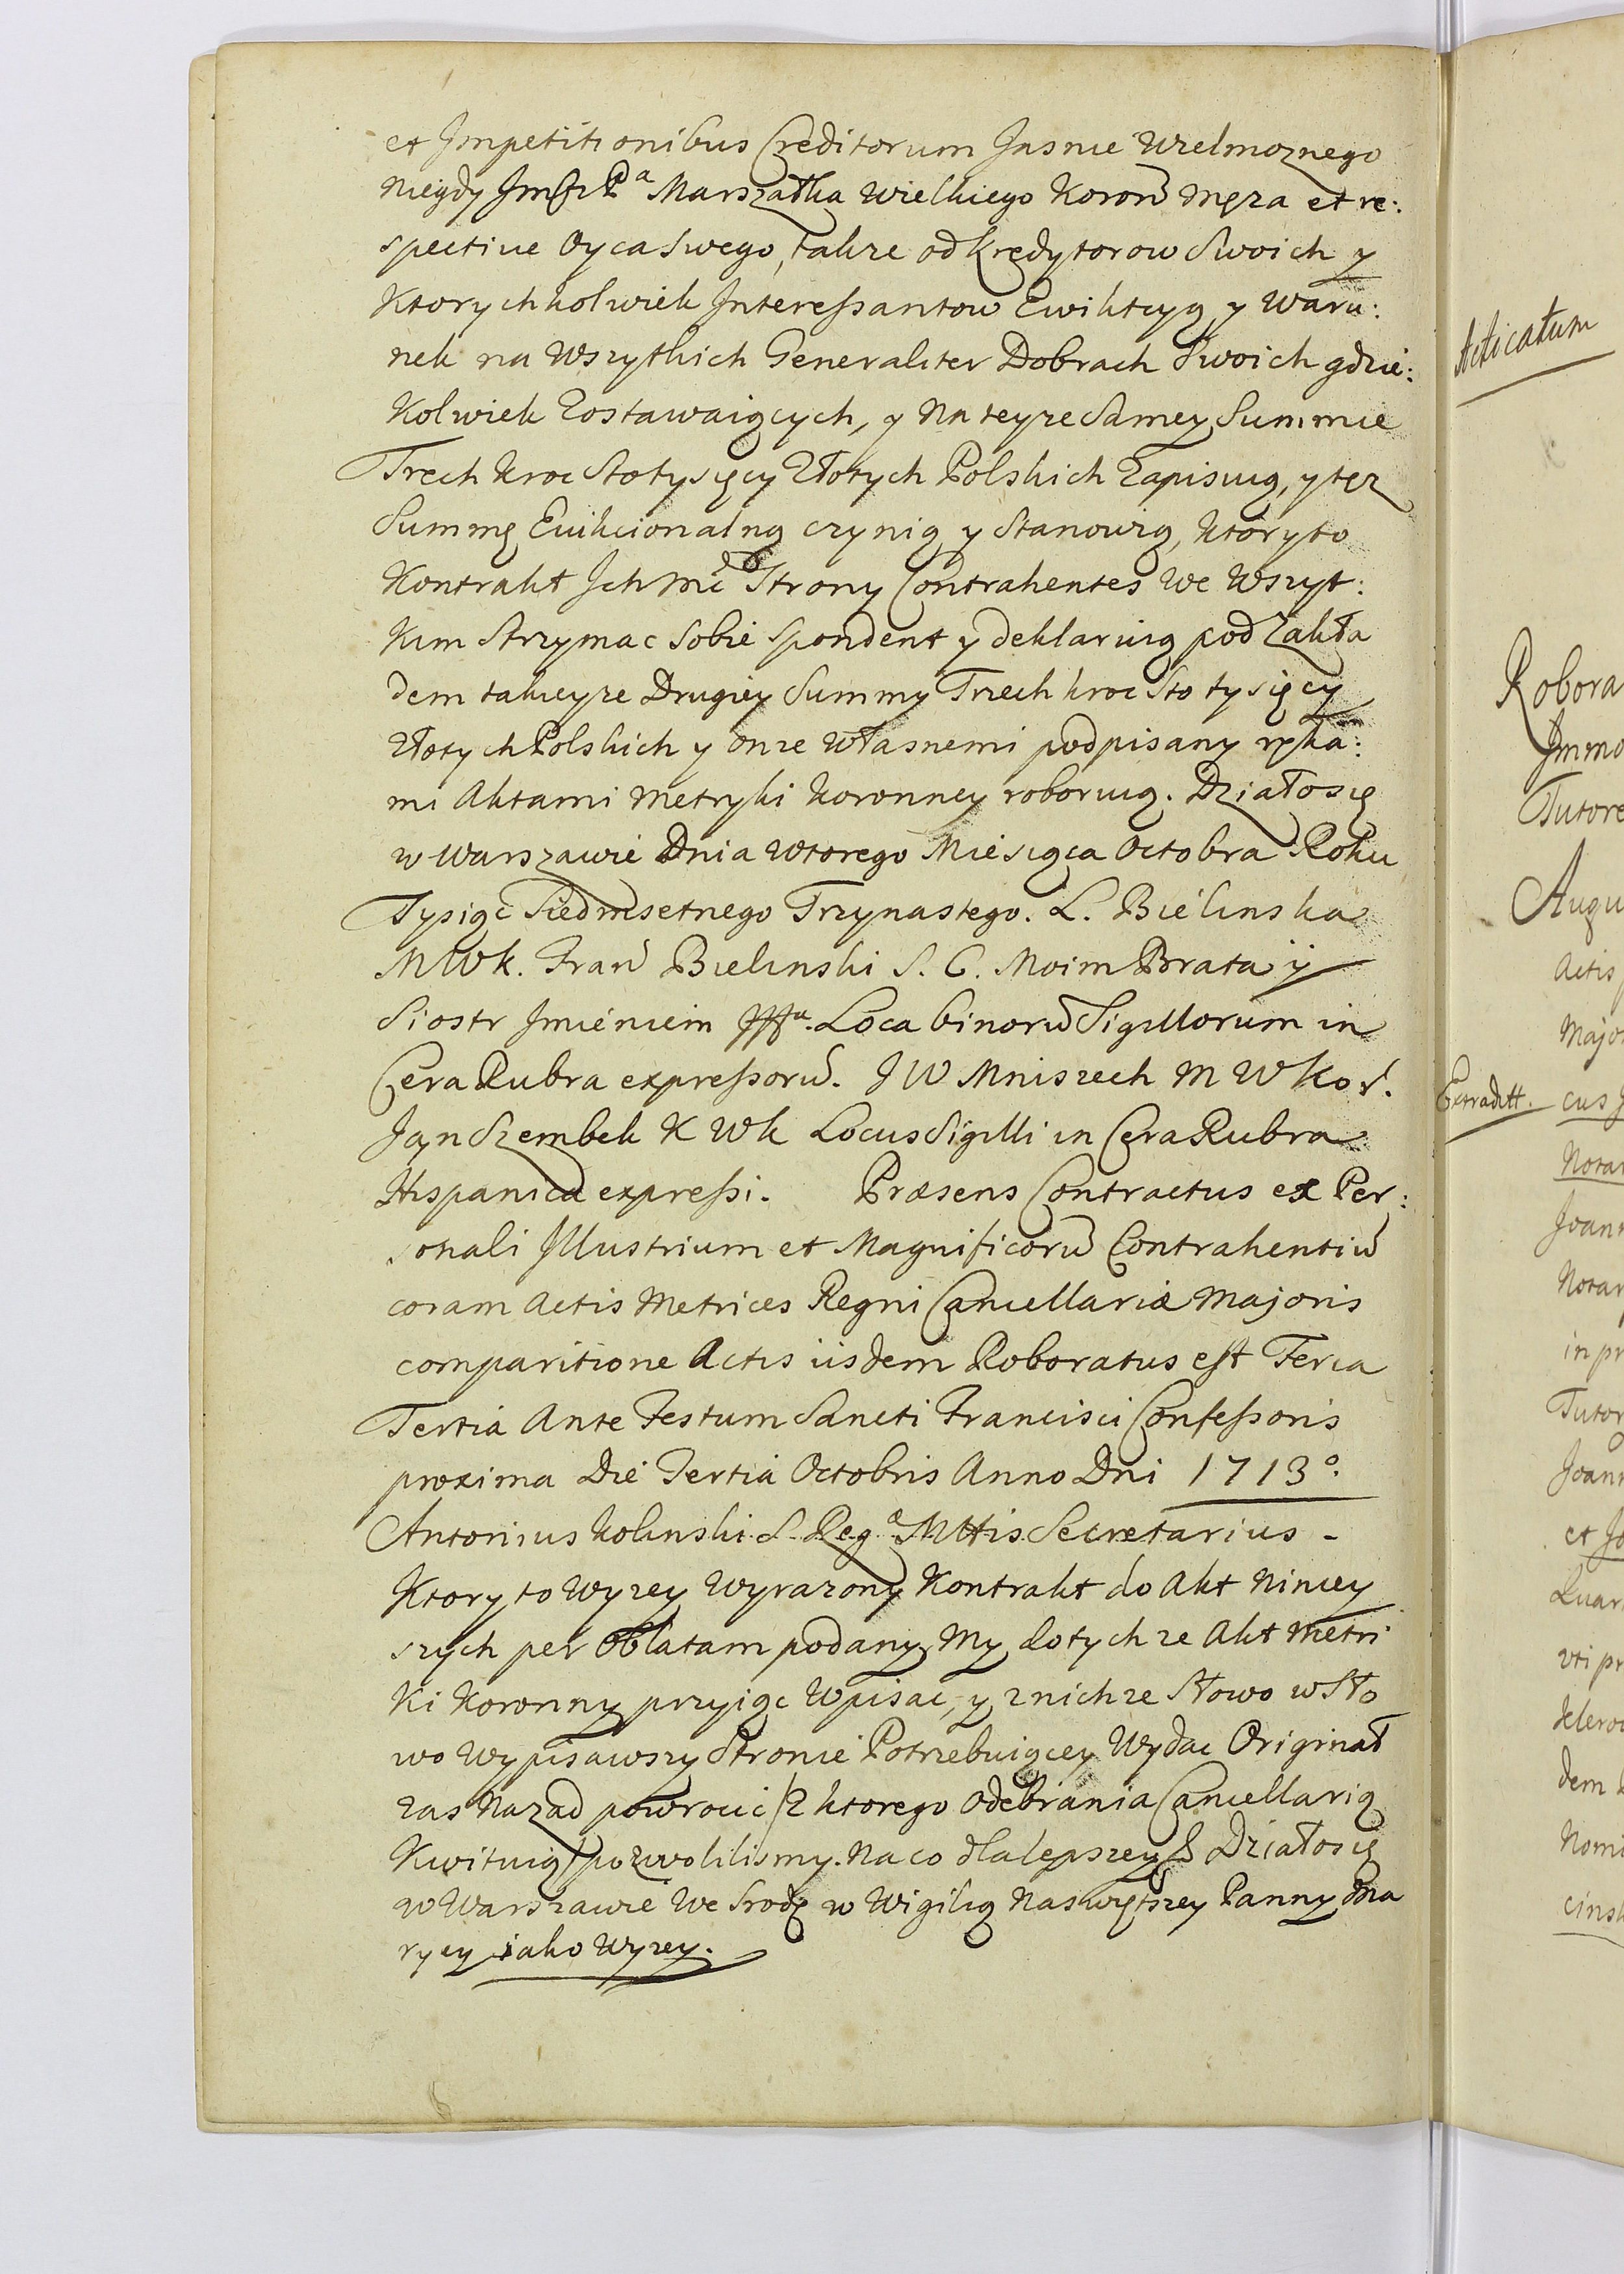 et Jmpetitionibus Creditorum Jasnie Wielmoznego
niegdy Jmści Pª Marszałka Wielkiego Koroñ męza et re:
spective Oyca swego, takze od kredytorow Swoich y
Ktorychkolwiek Jnteressantow Ewikcyą y Waru:
nek na Wszytkich Generaliter Dobrach Swoich gdzie:
Kolwiek Zostawaiących, y Na teyze Samey Summie
Trech kroc Stotysięcy Złotych Polskich Zapisuią, y tęz
Summę Ewikcionalną czynią y Stanowią, ktory to
Kontrakt Jch Mć Strony Contrahentes We Wszyt:
Kim strzymac sobie spondent y deklaruią pod Zakła
dem takieyze Drugiey Summy Trzech kroc Sto tysięcy
Złotych Polskich y onze własnemi podpisany ręka:
mi Aktami Metryki Koronney roboruią. Działo się
w Warszawie Dnia Wtorego Miesiąca Octobra Roku
Tysiąc Siedmsetnego Trzynastego. L. Bielinska
MWK. Frañ Bielinski S. C. Moim Brata ÿ
Siostr Jmieniem Loca binorũ Sigillorum in
Cera Rubra expressorũ. J W Mniszech M W Kor.
Jan Szembek K W K Locus Sigilli in Cera Rubra
Hispanica expressi. Præsens Contractus ex Per:
sonali Jllustrium et Magnificorũ Contrahentiũ
coram Actis Metrices Regni Cancellariæ Majoris
comparitione Actis iisdem Roboratus est Feria
Tertia Ante Festum Sancti Francisci Confessoris
proxima Die Tertia Octobris Anno Dni 1713º.
Antonius Kolinski S. Regª MTtis Secretarius -
Ktory to Wyzey Wyrazony Kontrakt do Akt Niniey
szych per Oblatam podany, My do tychze Akt Metri
Ki Koronny przyiąc Wpisac, y znichze Słowo w Sło
wo Wypisawszy Stronie Potrzebuiącey Wydac Originał
zas Nazad powrocic /Z ktorego Odebrania Cancellarią
Kwituią/ pozwolilismy. Na co dla lepszey & Działo się
w Warszawie We Srodę w Wigilią Naswiętszey Panny Ma
ryey iako Wyzey.
Acticatum
Robora
Jmmo
Tutore
Augu
Actis
Major
Extraditt. cus J
Notar
Joann
Notar
in pr
Tutor
Joann
et Jo
vti pr
dem
Nomi
cinsk